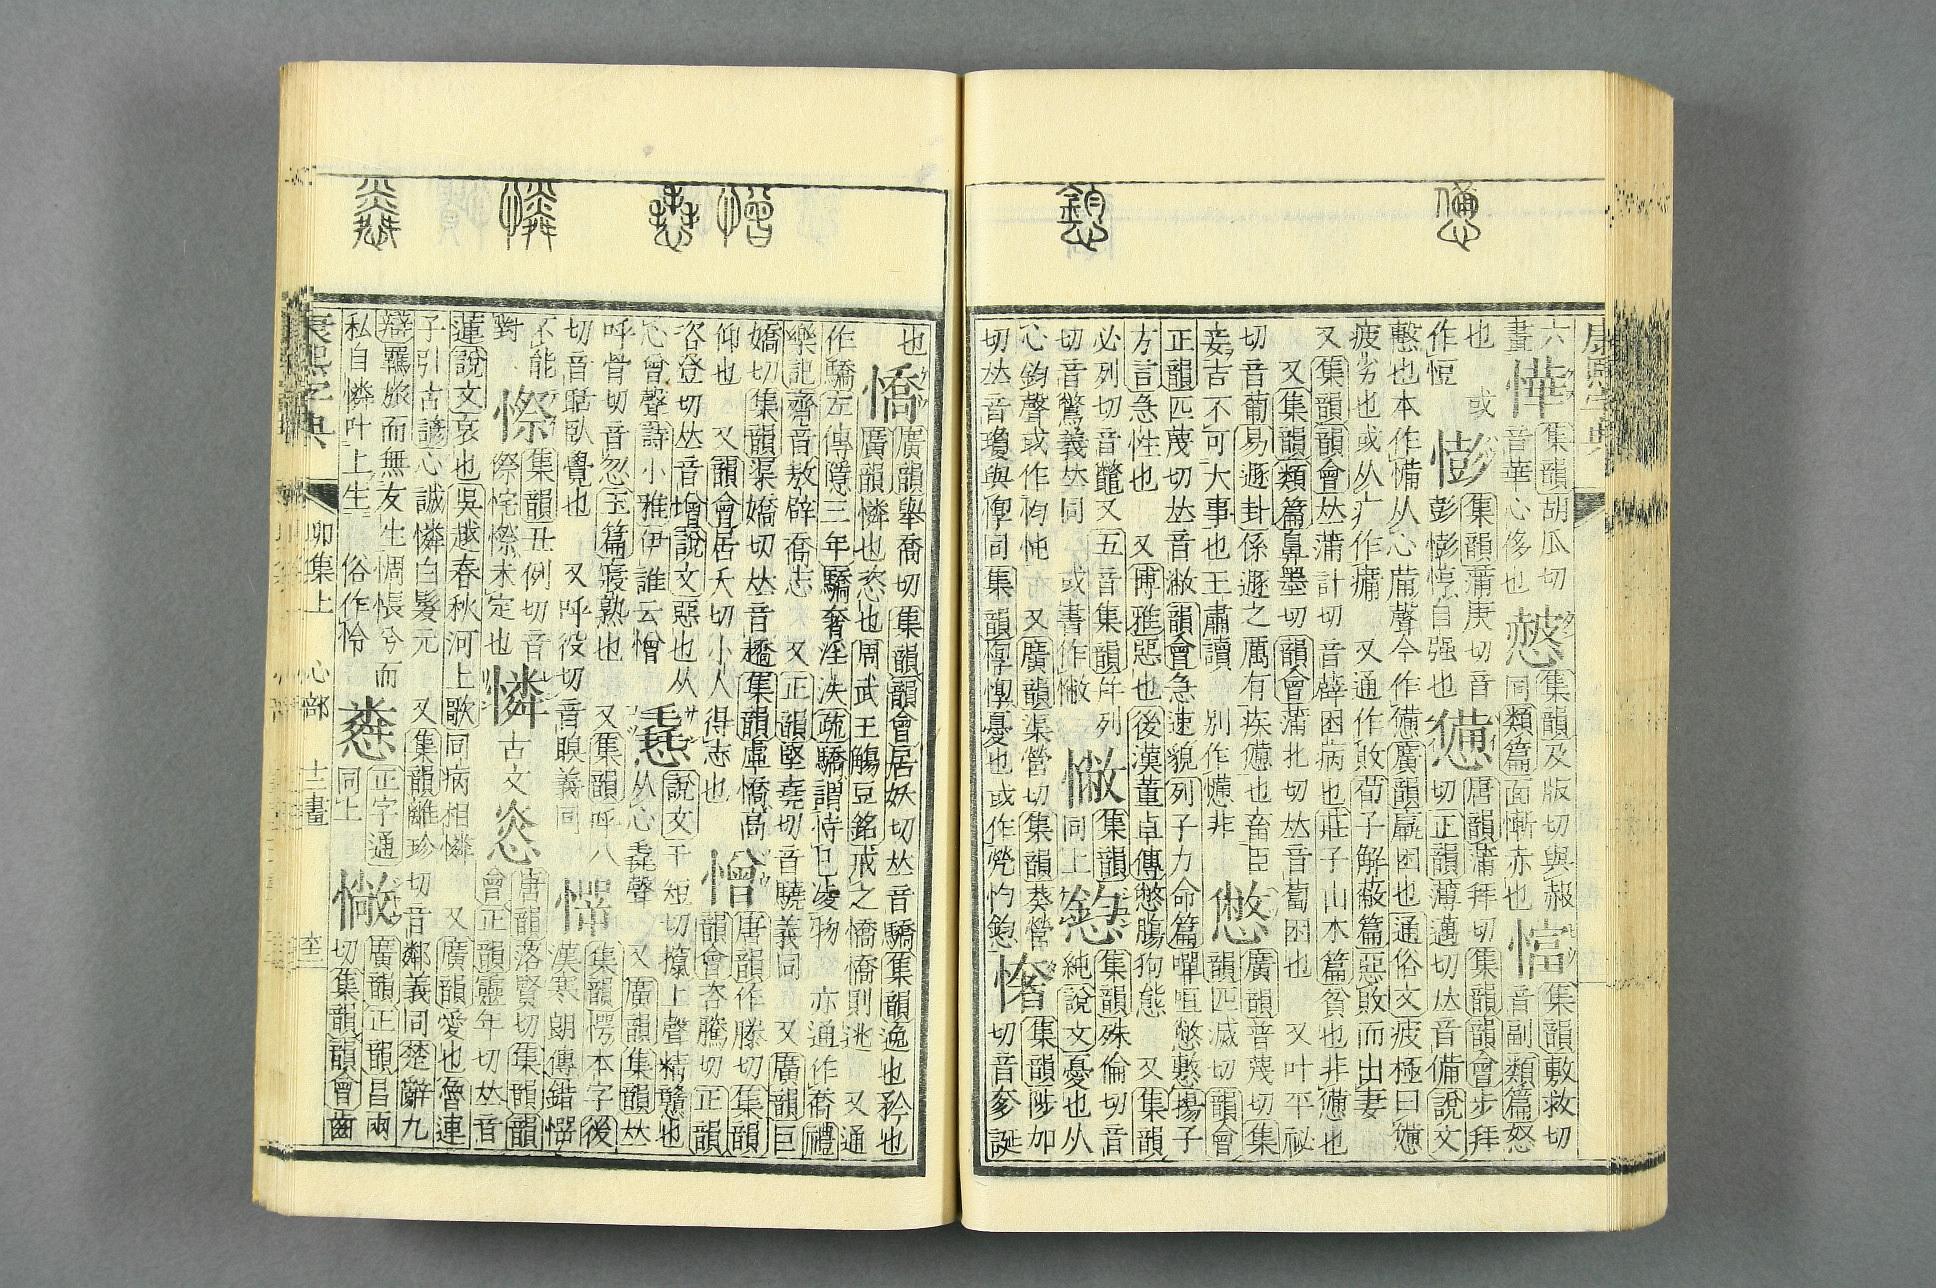 康熙字典
六
畫
集韻胡瓜切
音華心侈也
集韻及版切與赧
同類篇面慚赤也
集韻敷救切
音副類篇怒
也 或
作恆
憉
集韻蒲庚切音
彭憉悙自强也
憊
唐韻蒲拜切集韻韻會步拜
切正韻薄邁切𠀤音備說文
憗也本作㣁从心㣁聲今作憊廣韻羸困也通俗文疲極曰憊
疲劣也或从疒作 又通作敗荀子解蔽篇惡敗而出妻
又集韻韻會𠀤蒲計切音薜困病也莊子山木篇貧也非憊也
又集韻類篇鼻墨切韻會蒲北切𠀤音蔔困也 又叶平祕
切音葡易遯卦係遯之厲有疾憊也畜臣
妾吉不可大事也王肅讀 別作非
憋
廣韻普蔑切集
韻匹滅切韻會
正韻匹蔑切𠀤音敝韻會急速貌列子力命篇嘽咺憋懯揚子
方言急性也 又博雅惡也後漢董卓傳憋腸狗態 又集韻
必列切音鼈又五音集韻幷列
切音驚義𠀤同 或書作㦢
㦢
集韻
同上
憌
集韻殊倫切音
純說文憂也从
心鈞聲或作恂忳 又廣韻渠營切集韻葵營
切𠀤音瓊與惸同集韻惸憂也或作憌
集韻陟加
切音奓誕
也
憍
廣韻舉喬切集韻韻會居妖切𠀤音驕集韻逸也矜也
廣韻憐也恣也周武王觴豆銘戒之憍憍則逃 又通
作驕左傳隱三年驕奢淫泆疏驕謂恃已凌物 亦通作喬禮
樂記齊音敖辟喬志 又正韻堅堯切音驍義同 又廣韻巨
嬌切集韻渠嬌切𠀤音趫集韻虛憍高
仰也 又韻會居夭切小人得志也
憎
唐韻作滕切集韻
韻會咨騰切正韻
咨登切𠀤音增說文惡也从
心曾聲詩小雅伊誰云憎
㦌
說文千短切攛上聲精戇也
从心毳聲 又廣韻集韻𠀤
呼骨切音忽玉篇寢熟也 又集韻呼八
切音臥覺也 又呼役切音瞁義同
㦍
集韻愕本字後
漢寒朗傳錯㦍
不能
對
憏
集韻丑例切音
傺侘憏未定也
憐
古文㷠
唐韻落賢切集韻
韻會正韻靈年切𠀤音
蓮說文哀也吳越春秋河上歌同病相憐 又廣韻愛也魯連
子引古諺心誠憐白髮元 又集韻離珍切音鄰義同楚辭九
辯羈旅而無友生惆悵兮而
私自憐叶上生 俗作怜
正字通
同上
㦂
廣韻正韻昌兩
切集韻韻會齒
康熙字典 卯集上 心部 十二畫